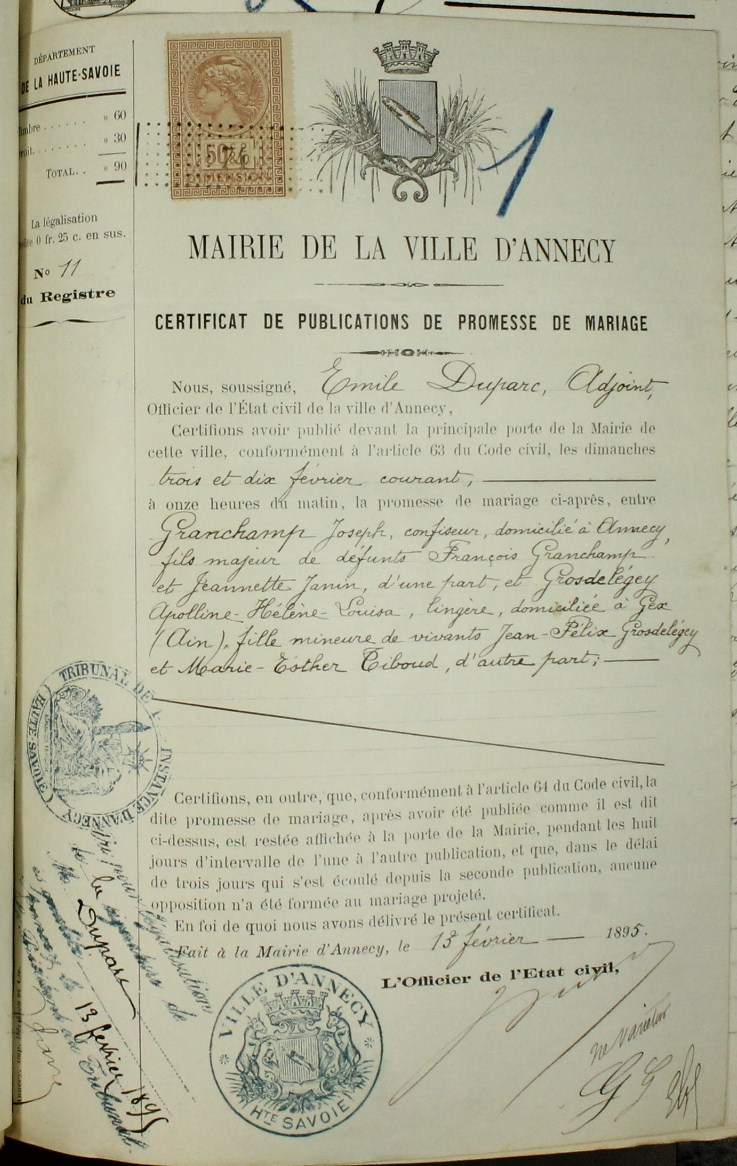 DÉPARTEMENT
DE LA HAUTE-SAVOIE
Timbre . . . . . . » 60
Droit. . . . . . . . » 30
TOTAL. . » 90
La légalisation
coûte 0 fr. 25 c. en sus.
No 11
du Registre
50c
DIMENSION
1
MAIRIE DE LA VILLE D'ANNECY
CERTIFICAT DE PUBLICATIONS DE PROMESSE DE MARIAGE
Nous, soussigné, Emile Duparc, Adjoint,
Officier de l'État civil de la ville d'Annecy,
Certifions avoir publié devant la principale porte de la Mairie de
cette ville, conformément à l'article 63 du Code civil, les dimanches
trois et dix février courant,
à onze heures du matin, la promesse de mariage ci-après, entre
Granchamp Joseph, confiseur, domicilié à Annecy,
fils majeur de défunts François Granchamp
et Jeannette Janin, d'une part, et Grosdelégey
Apolline-Hélène-Louisa, lingère, domiciliée à Gex
(Ain), fille mineure de vivants Jean-Félix Grosdelégey
et Marie-Esther Tiboud, d'autre part;
Certifions, en outre, que, conformément à l'article 64 du Code civil, la
dite promesse de mariage, après avoir été publiée comme il est dit
ci-dessus, est restée affichée à la porte de la Mairie, pendant les huit
jours d'intervalle de l'une à l'autre publication, et que, dans le délai
de trois jours qui s'est écoulé depuis la seconde publication, aucune
opposition n'a été formée au mariage projeté.
En foi de quoi nous avons délivré le présent certificat.
Fait à la Mairie d'Annecy, le 13 février 1895.
L'Officier de l'Etat civil,
ne varietur
VILLE D'ANNECY
HTE SAVOIE
TRIBUNAL DE 1 INSTANCE D'ANNECY
(HAUTE SAVOIE)
Vu pour légalisation
de la signature de
M. Duparc
13 février 1895